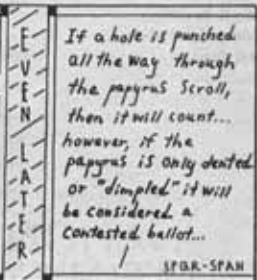 EVEN LATER
If a hole is punched
all the way through
the papyrus scroll,
then it will count...
however, if the
papyrus is only dented
or "dimpled" it will
be considered a
contested ballot...
SPQR-SPAN